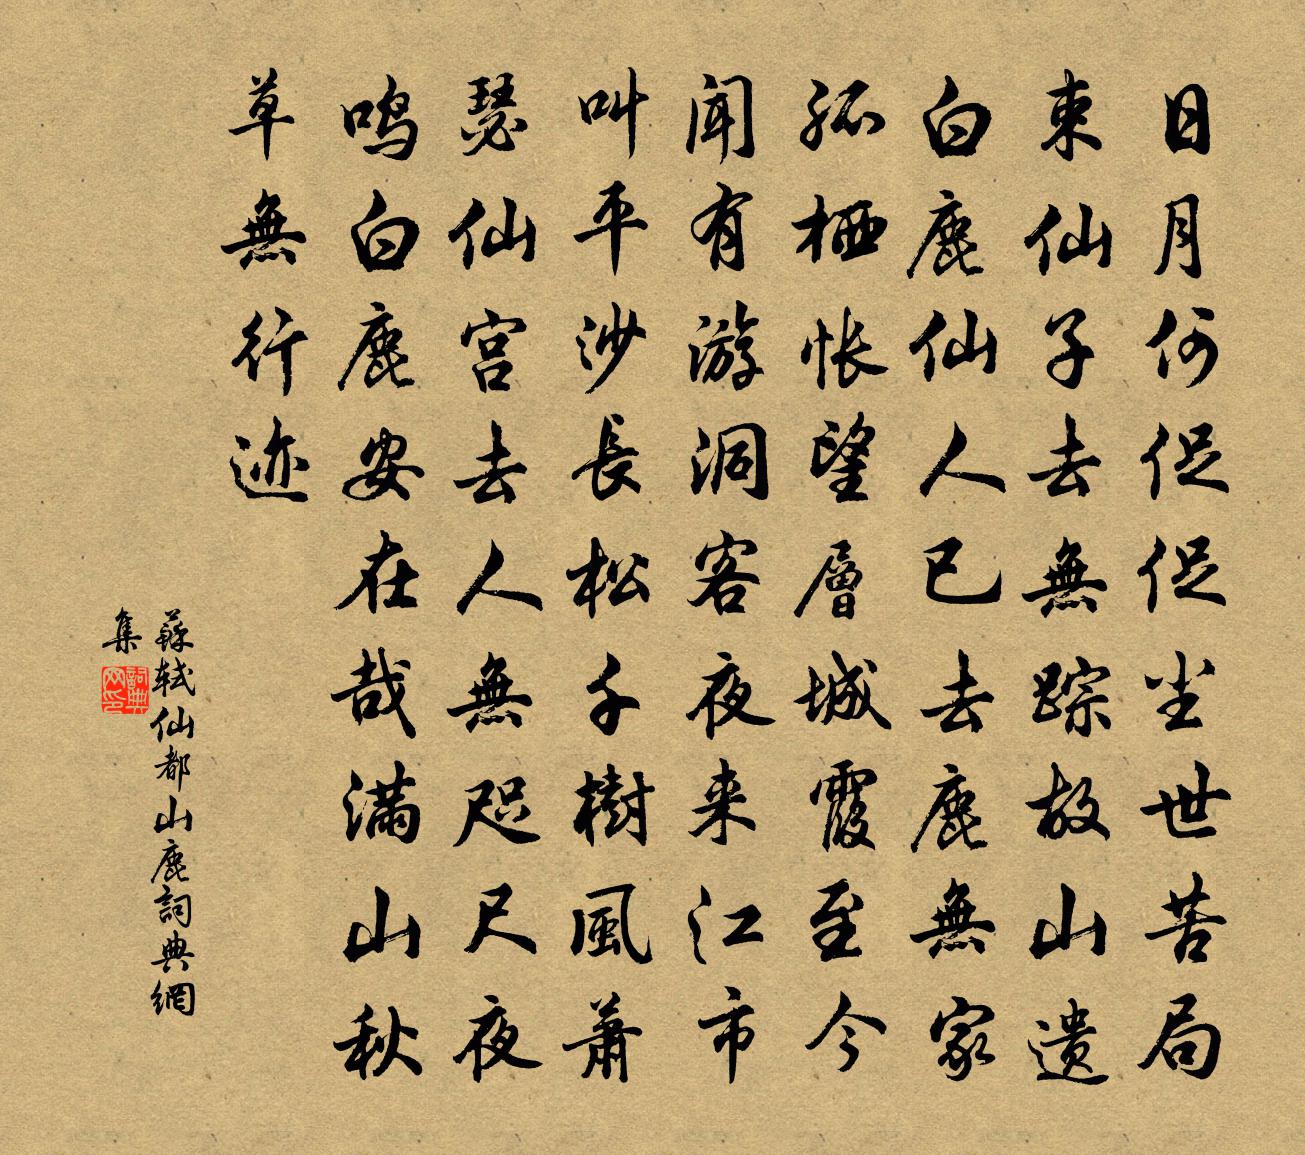 日月何促促尘世苦局
束仙子去無踪故山遗
白鹿仙人已去鹿無家
孤栖怅望層城霞至今
闻有游洞客夜来江市
叫平沙長松千樹風萧
瑟仙宫去人無咫尺夜
鸣白鹿安在哉满山秋
草無行迹
蘇轼仙都山鹿詞典網
集
詞典网印